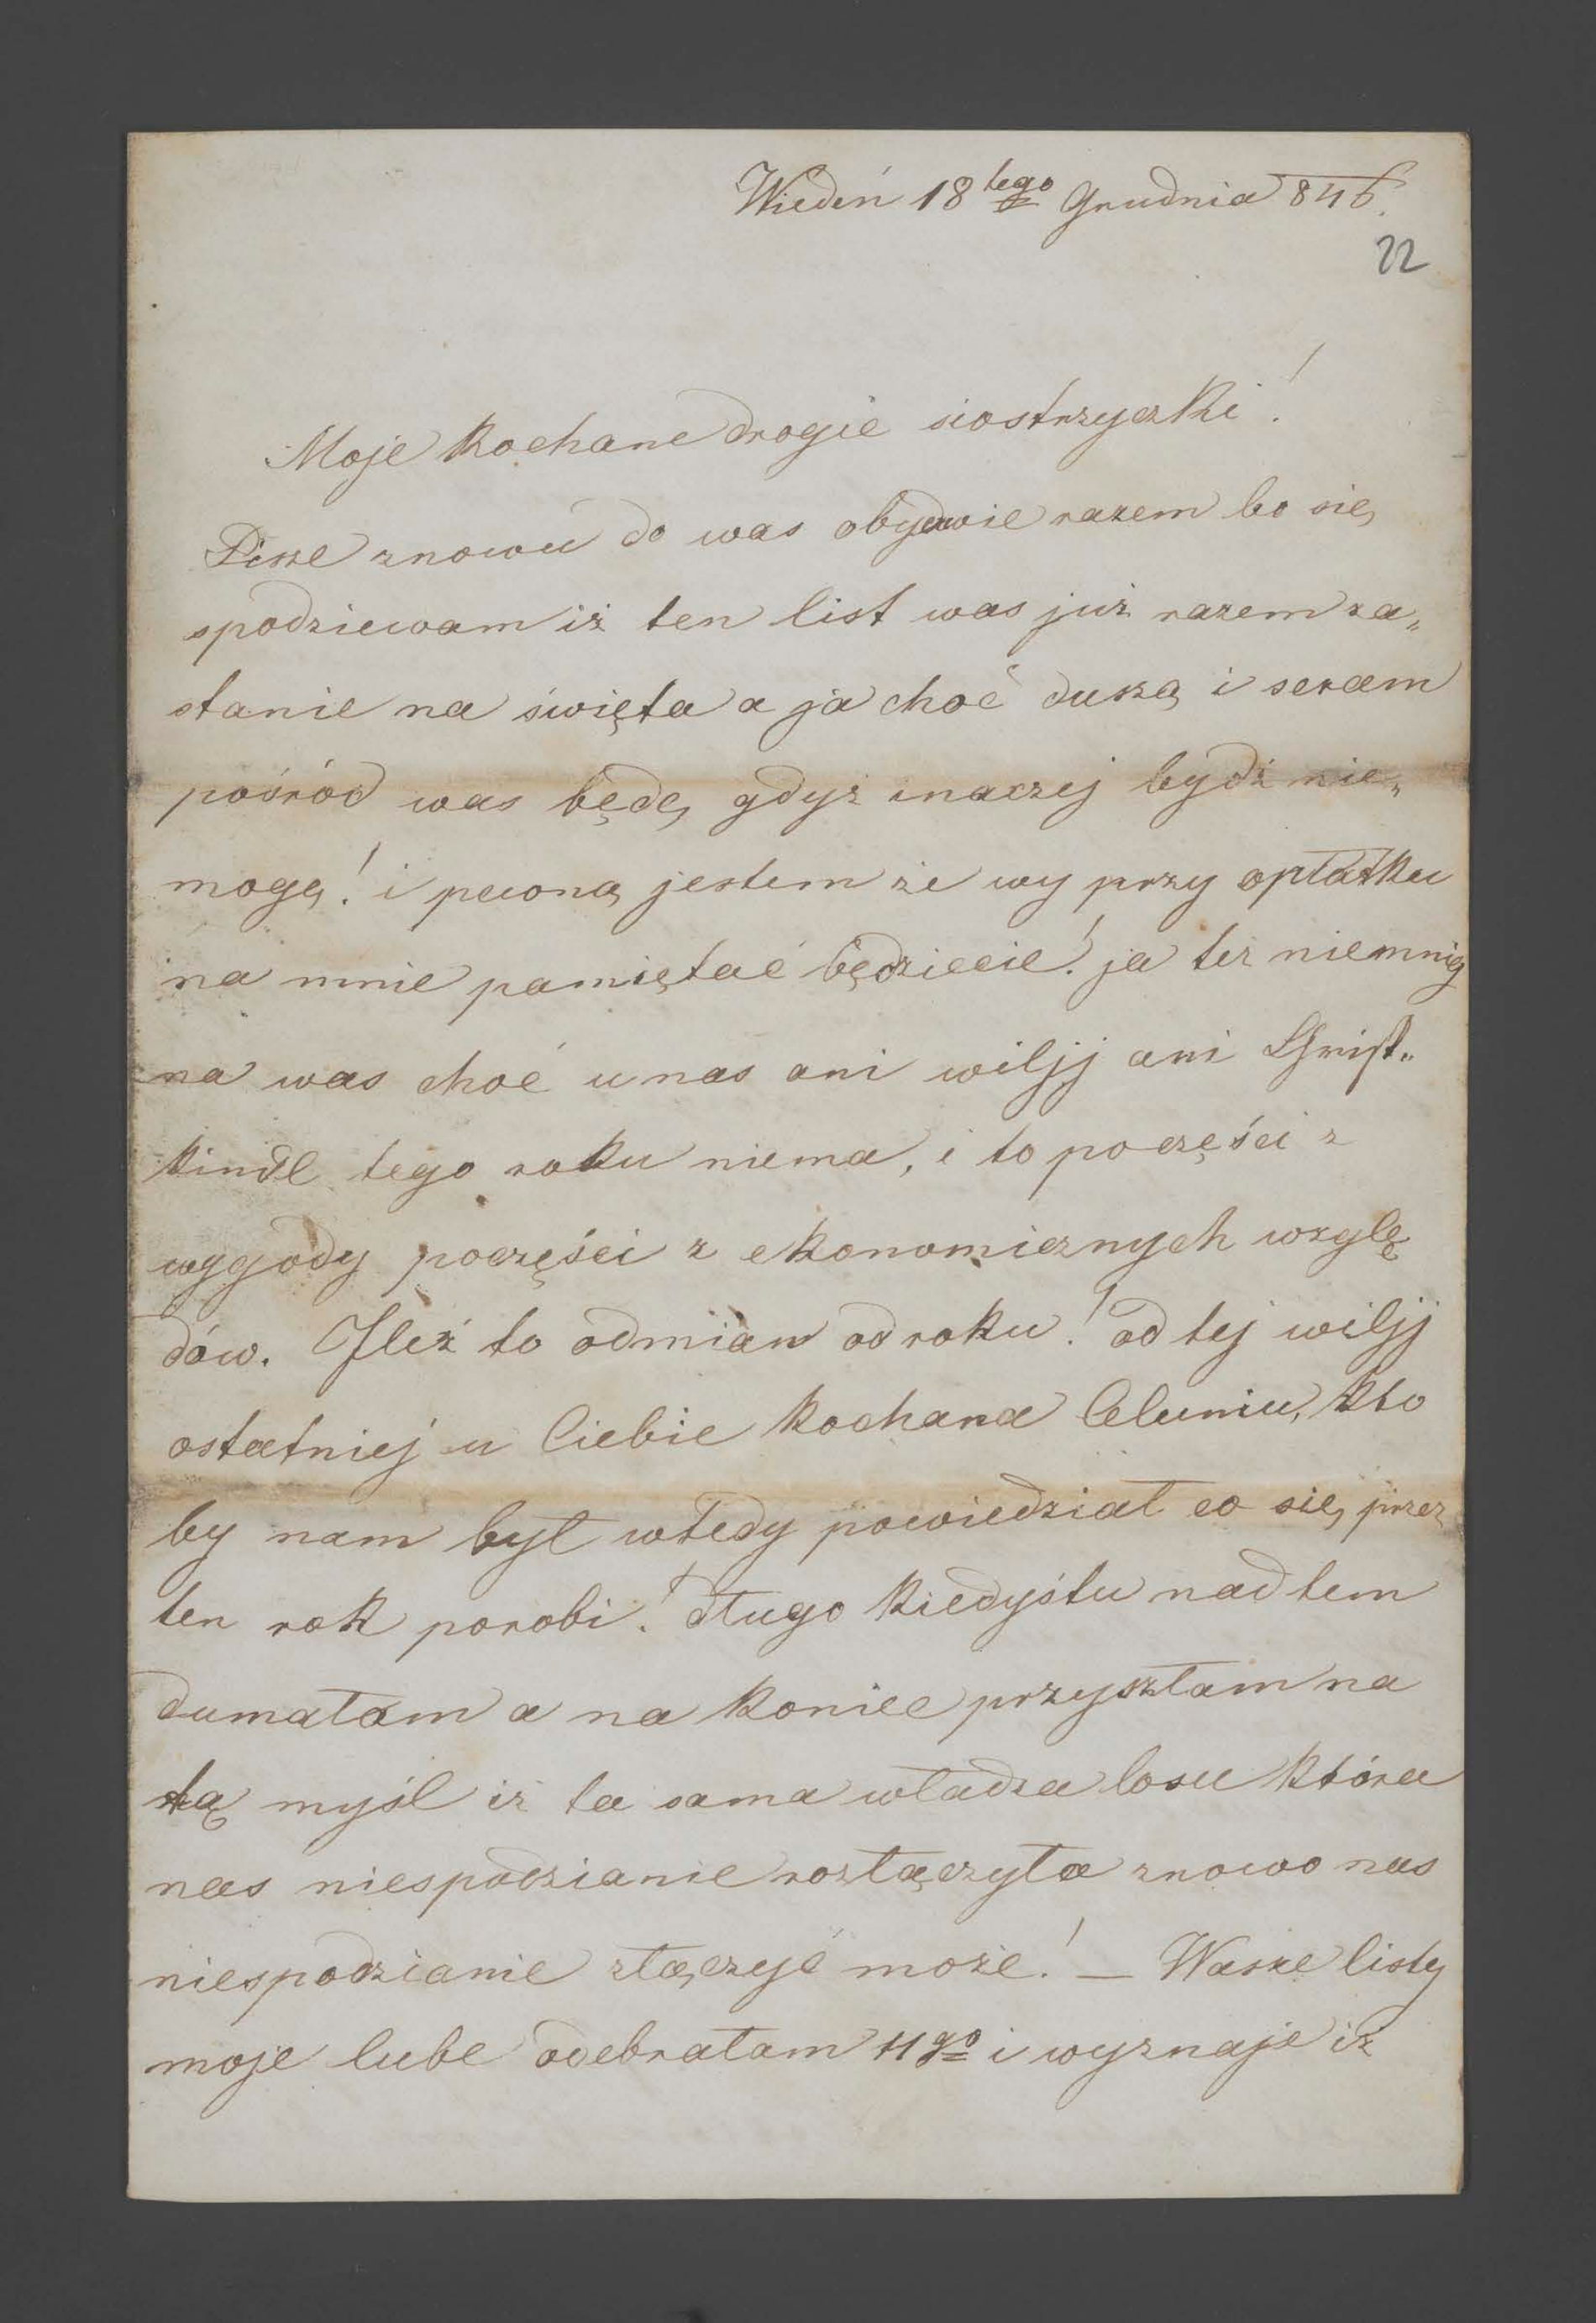 Wiedeń 18tego Grudnia 846.
22
Moje kochane drogie siostrzyczki!
Pisze znowu do was obydwie razem bo się
spodziewam iż ten list was już razem za„
stanie na święta a ja choć duszą i sercem
pośród was będę, gdyż inaczej bydź nie„
mogę! i pewną jestem że wy przy opłatku
na mnie pamiętać będziecie! ja też niemniej
na was choć u nas ani wiljj ani Christ„
kindl tego roku niema, i to poczęści z
wygody poczęści z ekonomicznych wzglę
dów. Ileż to odmian od roku! od tej wiljj
ostatniej u Ciebie kochana Celuniu, kto
by nam był wtedy powiedział co się przez
ten rok porobi! długo kiedyśtu nad tem
dumałam a na koniec przyszłam na
tą myśl iż ta sama władza losu która
nas niespodzianie rozłączyła znowo nas
niespodzianie złączyć może! — Wasze listy
moje lube odebrałam 11go i wyznaje iż